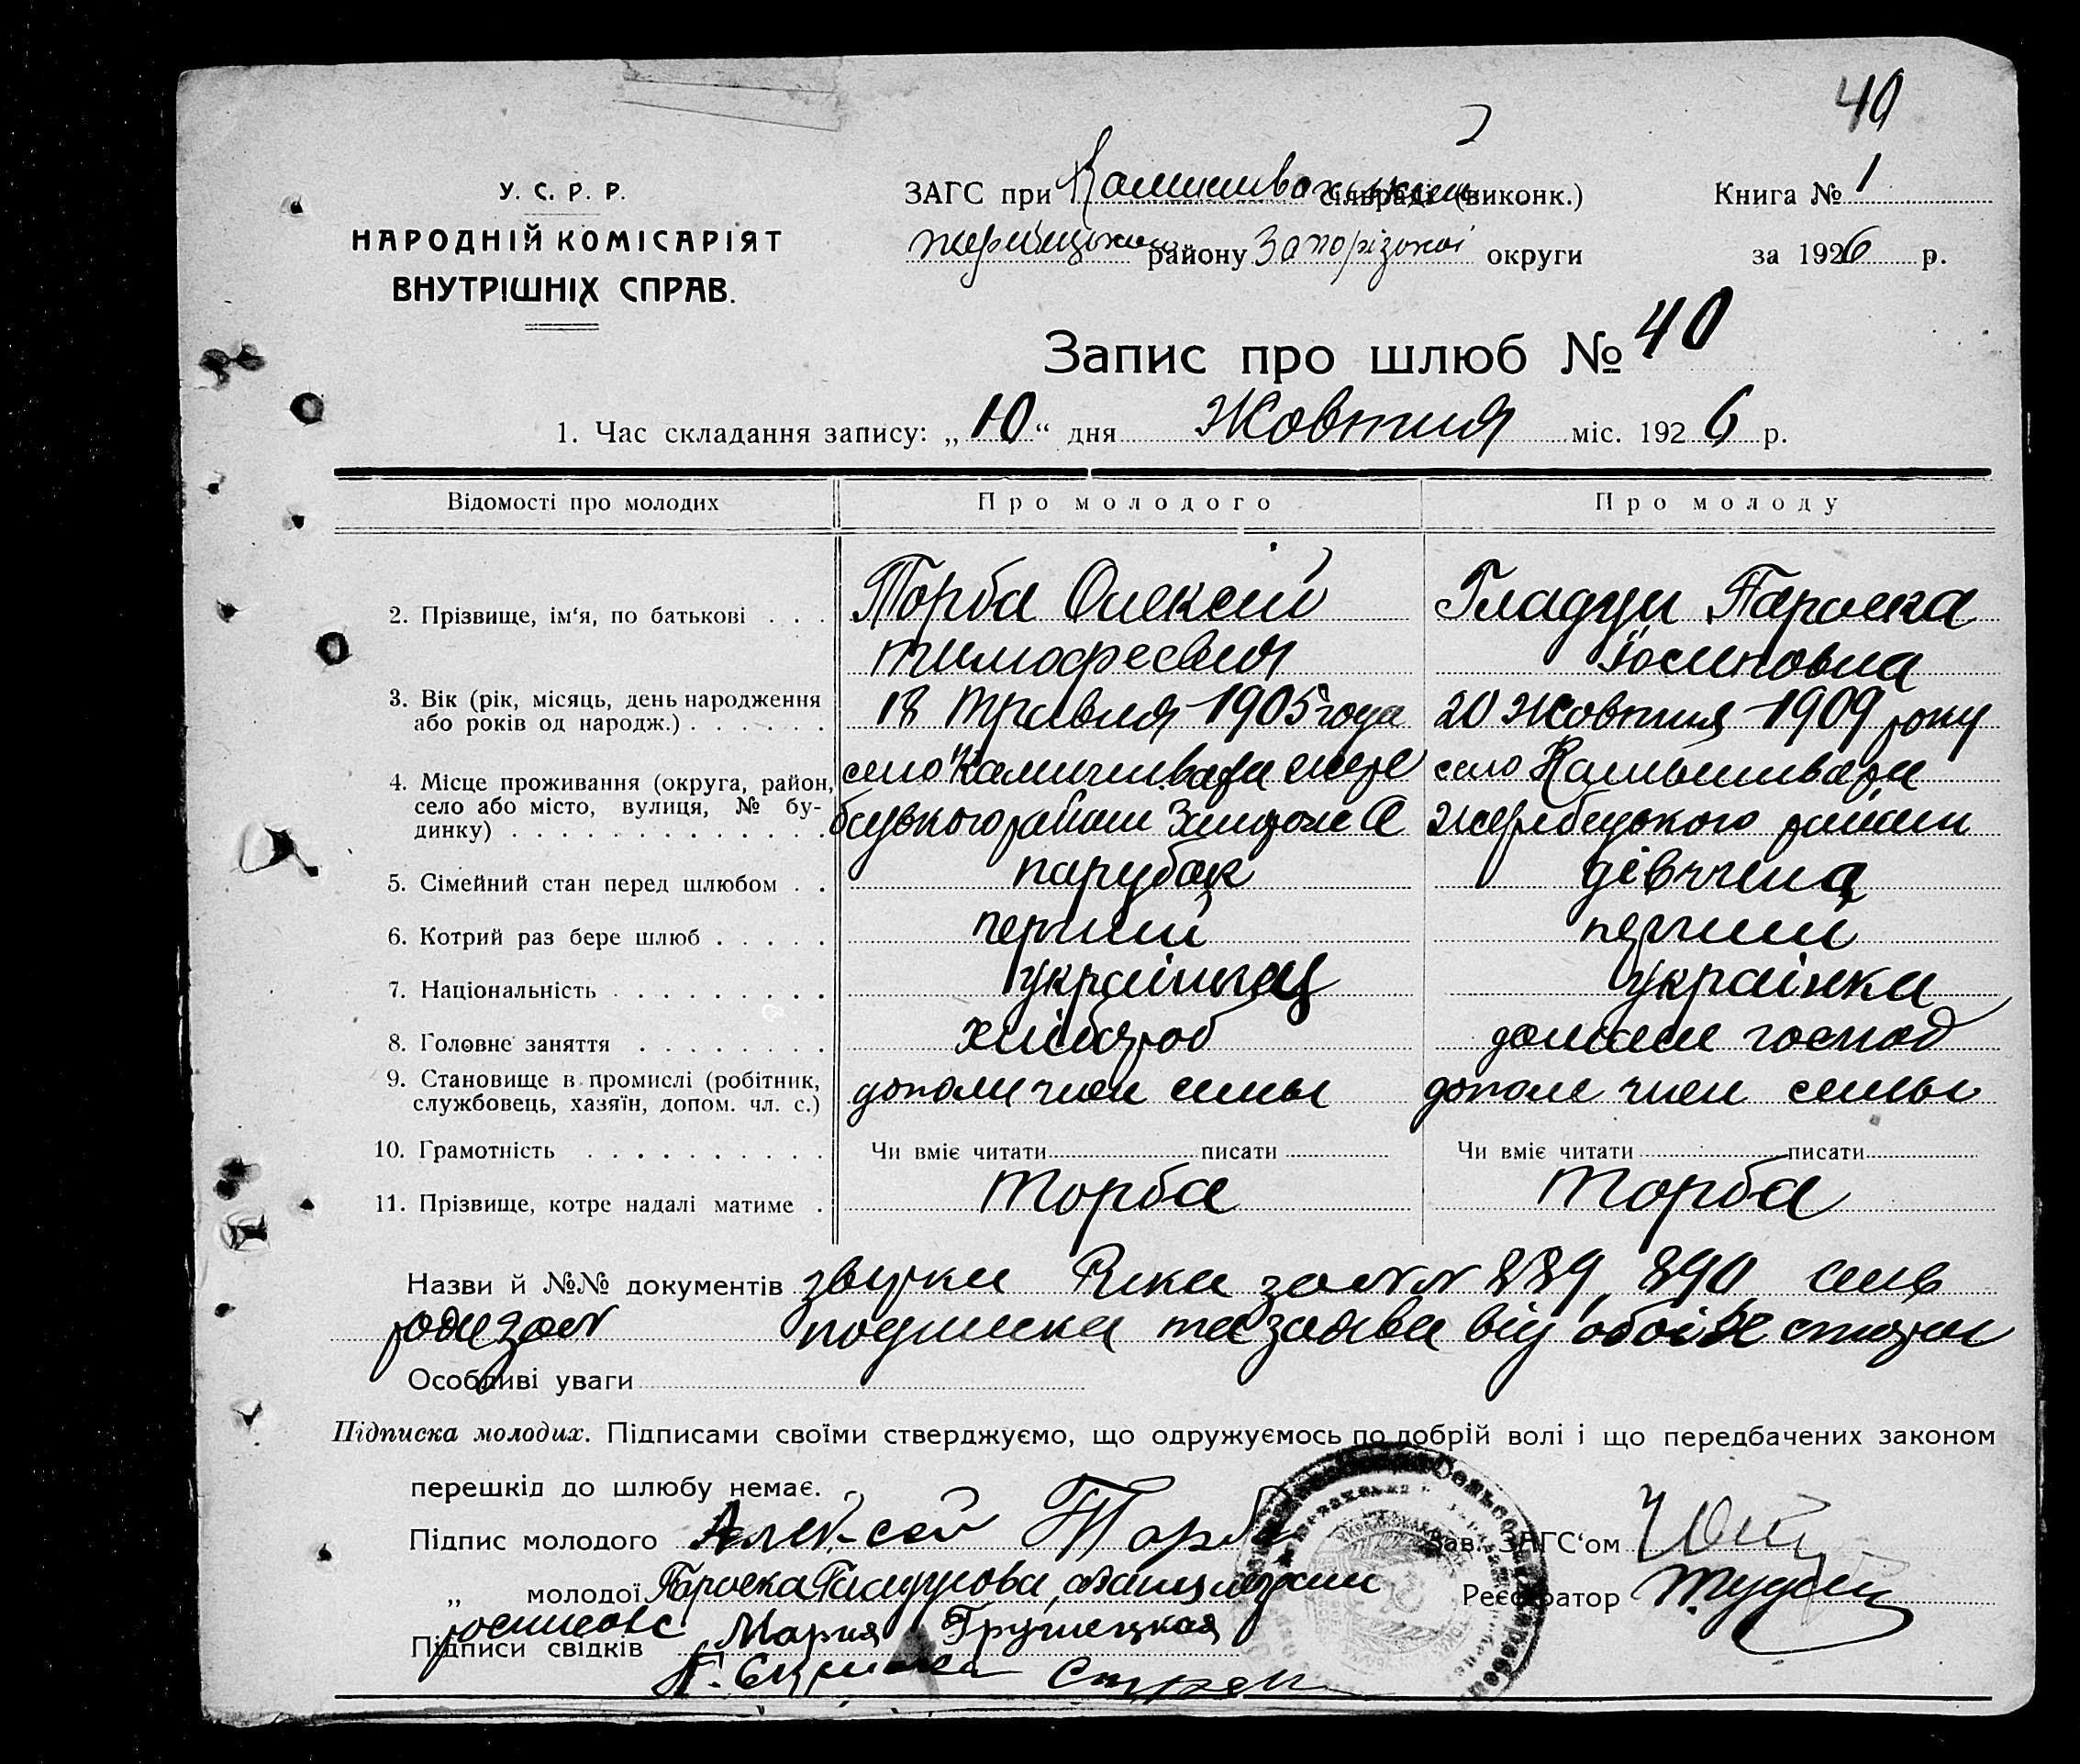 40
У. С. Р. Р.
НАРОДНІЙ КОМІСАРІЯТ
ВНУТРІШНІХ СПРАВ.
ЗАГС при Камишвахський сільраді (виконк.)
району Запорізької округи
Книга № 1
за 1926 р.
Запис про шлюб № 40
1. Час складання запису: „10“ дня Жовтня міс. 1926 р.
Відомості про молодих Про молодого Про молоду
2. Прізвище, ім‘я, по батькові . . . Торба Олексій Гладуш Пароска
тимофеевич Йосиповна
3. Вік (рік, місяць, день народження 18 травня 1905 года 20 Жовтня 1909 року
або років од народж.) . . . . . .
4. Місце проживання (округа, район, село Камишеваха жере село Камышеваха
село або місто, вулиця, № бу- бецького району жеребецького району
динку) . . . . . . . . . . . . .
5. Сімейний стан перед шлюбом . . парубак дівчина
6. Котрий раз бере шлюб . . . . . перший перший
7. Національність . . . . . . . . . українец українка
8. Головне заняття . . . . . . . . хлібороб домашн господ
9. Становище в промислі (робітник, допом член семьи допом член семьи
службовець, хазяїн, допом. чл. с.)
10. Грамотність . . . . . . . . . . Чи вміє читати писати Чи вміє читати писати
11. Прізвище, котре надалі матиме . Торба Торба
Назви й №№ документів 889, 890
подписка та заява від обоіх сторон
Особливі уваги
Підписка молодих. Підписами своїми стверджуємо, що одружуємось по добрій волі і що передбачених законом
перешкід до шлюбу немає.
Підпис молодого Алексей Торба Зав. ЗАГС‘ом
„ молодої Пароска
Реєстратор
Підписи свідків Мария